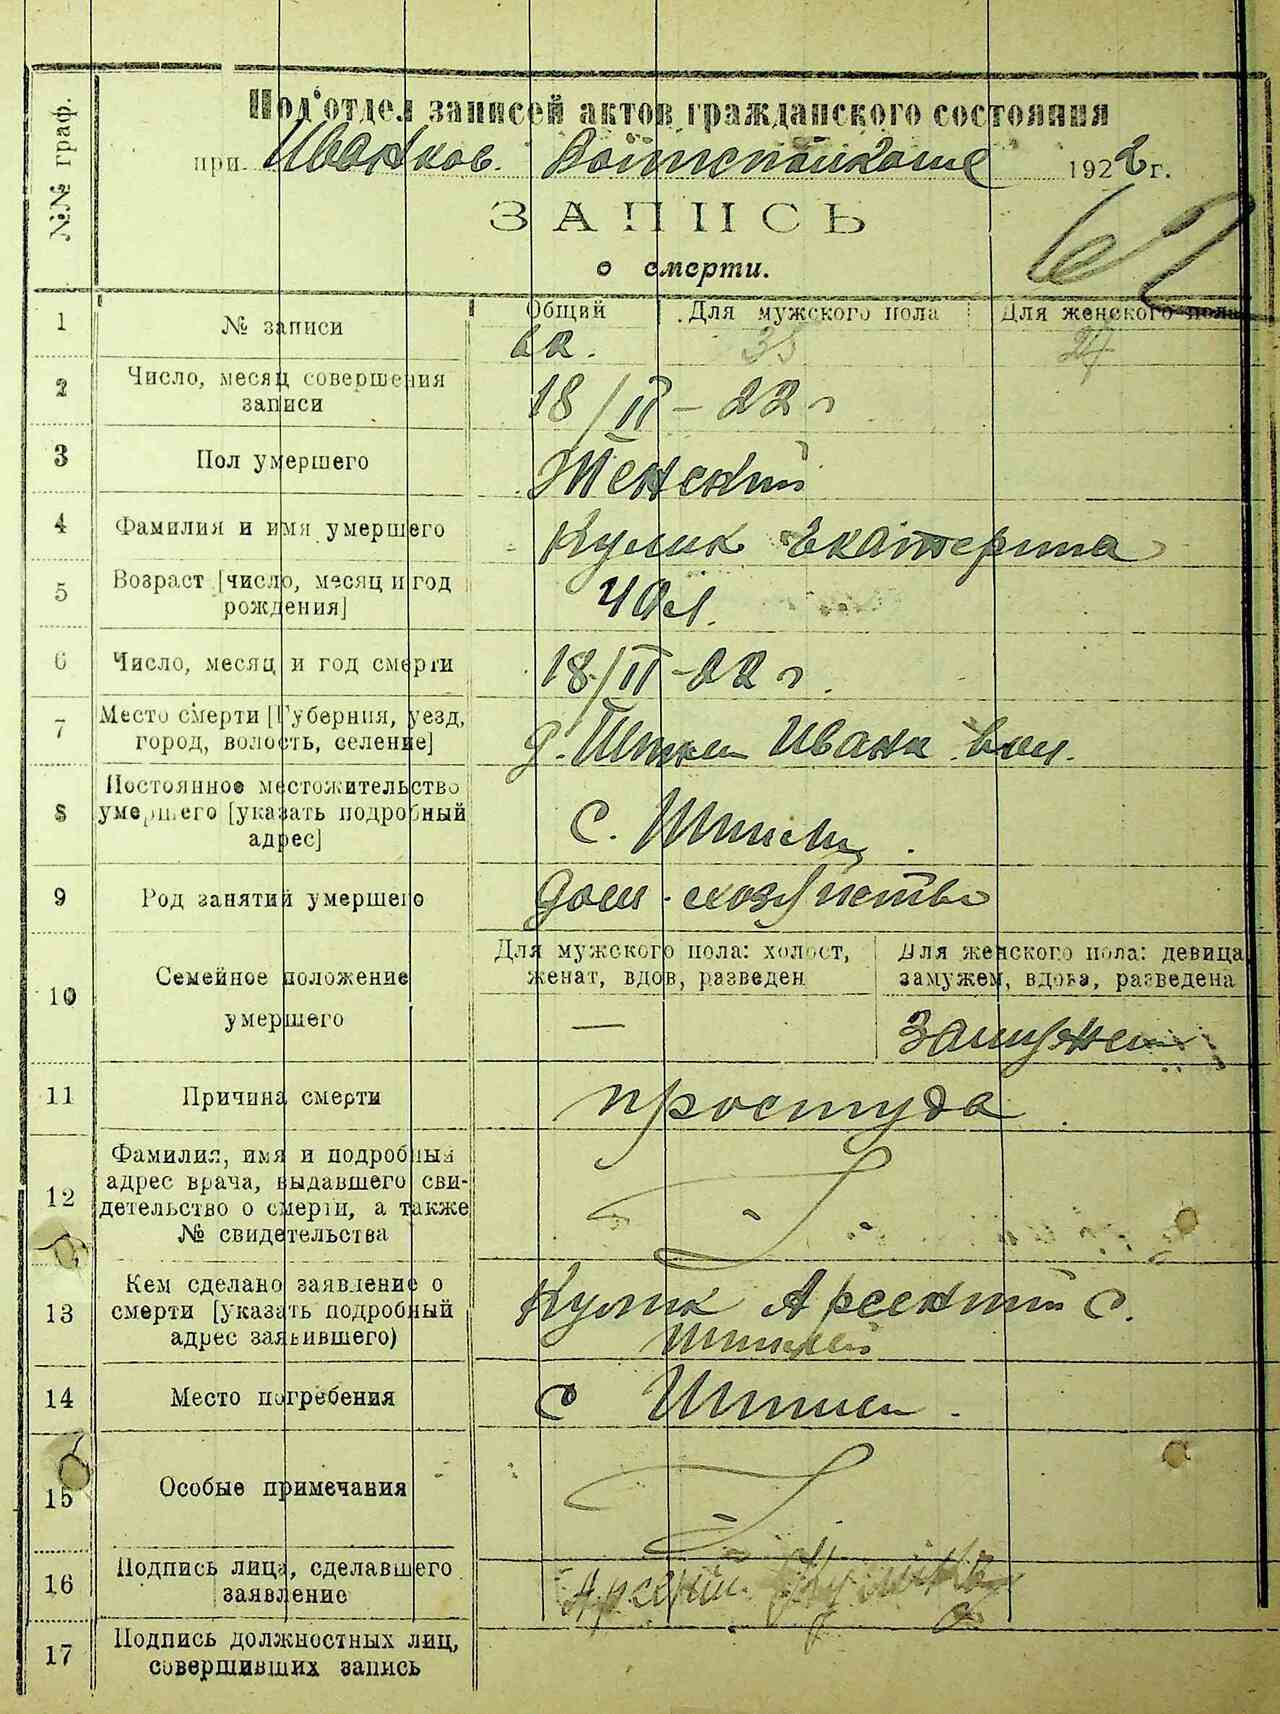 №№ граф.
Под'отдел записей актов гражданского состояния
при Иванков. 1922 г.
62
ЗАПИСЬ
о смерти.
1 № записи Общий Для мужского пола Для женского пола
62. 35 27
2 Число, месяц совершения
записи
18/II-22 г
3 Пол умершего Женский
4 Фамилия и имя умершего Кулик Екатерина
5 Возраст [число, месяц и год
рождения]
40 л.
6 Число, месяц и год смерти 18/II-22 г.
7 Место смерти [Губерния, уезд,
город, волость, селение]
Иванк. вол.
8 Постоянное местожительство
умершего [указать подробный
адрес]
с. Шпили.
9 Род занятий умершего дом. хозяйство
10 Семейное положение
умершего
Для мужского пола: холост,
женат, вдов, разведен
—
Для женского пола: девица
замужем, вдова, разведена
Замужем
11 Причина смерти простуда
12 Фамилия, имя и подробный
адрес врача, выдавшего сви-
детельство о смерти, а также
№ свидетельства
13 Кем сделано заявление о
смерти [указать подробный
адрес заявившего)
Кулик Арсений с.
Шпилей
14 Место погребения с Шпили.
15 Особые примечания
16 Подпись лица, сделавшего
заявление
Арсений
17 Подпись должностных лиц,
совершивших запись